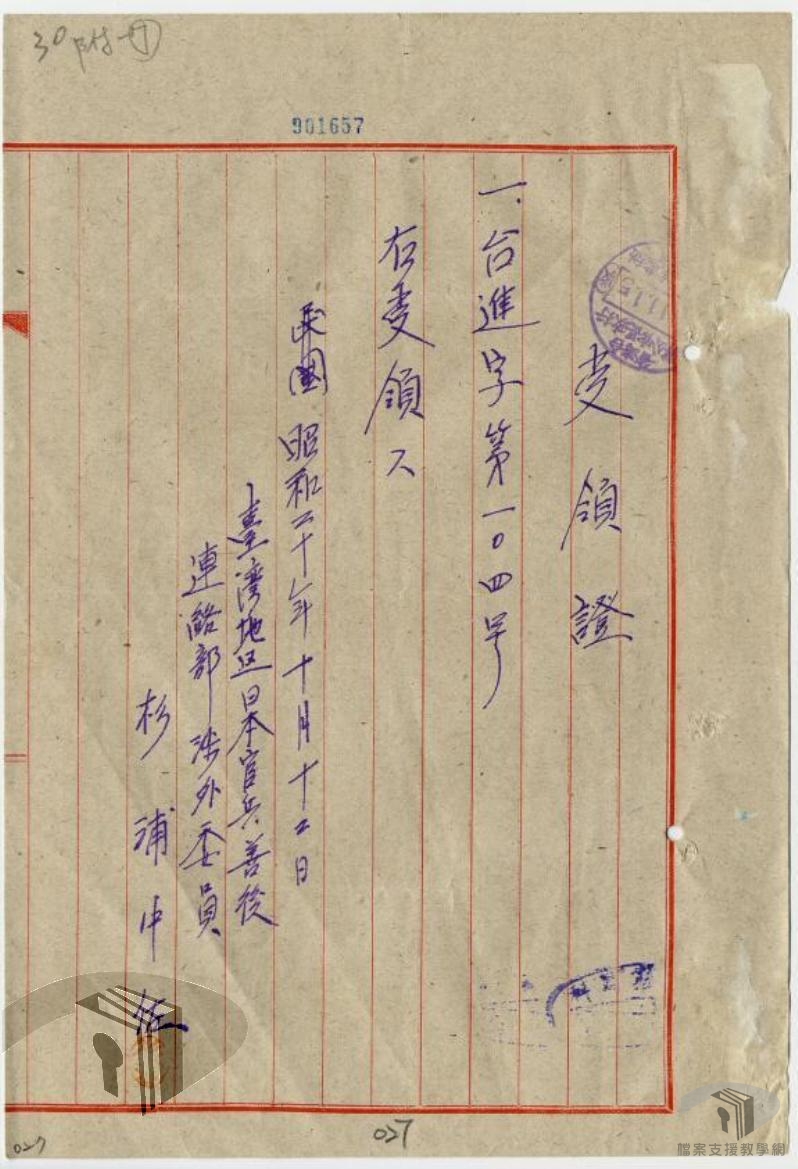 30附冊
901657
受領證
一、台進字第一〇四号
右受領ス
民國 昭和二十年十月十二日
臺湾地区日本官兵善後
連絡部涉外委員
杉浦中佐
027
027
檔案支援教學網